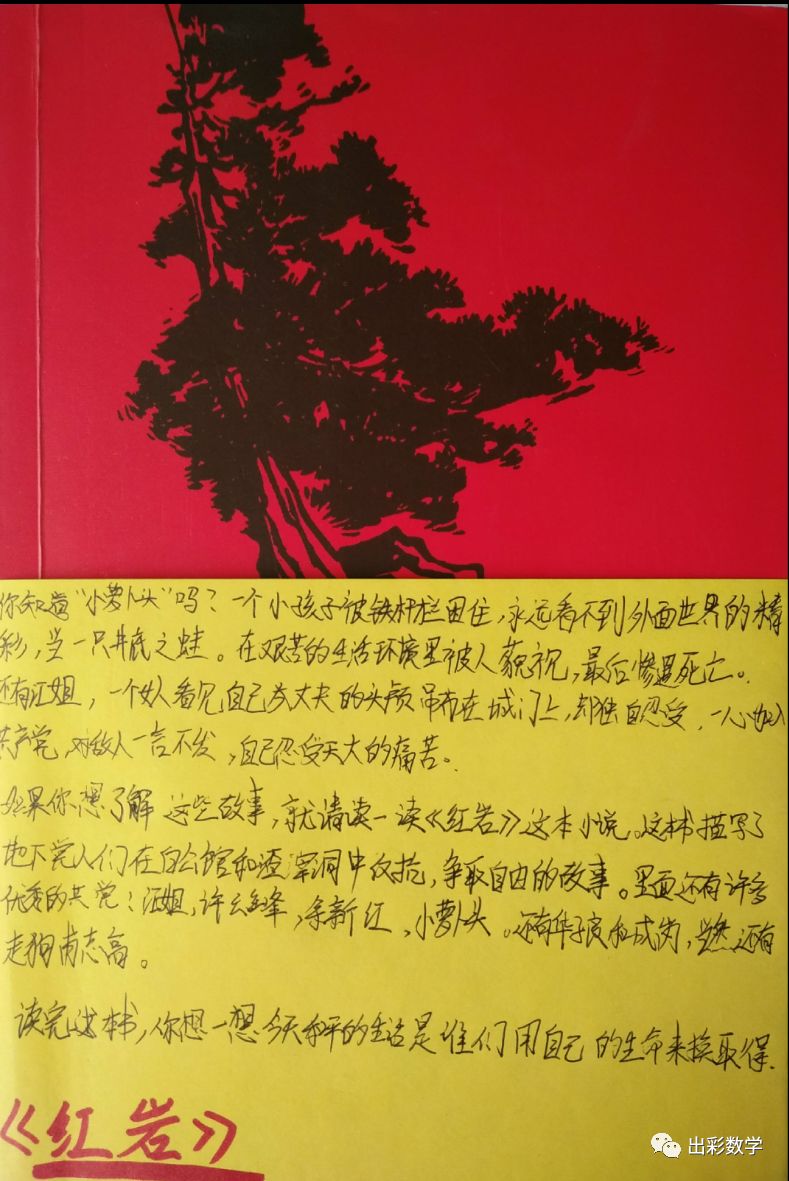 你知道“小萝卜头”吗？一个小孩子被铁杆栏困住，永远看不到外面世界的精
彩，当一只井底之蛙。在艰苦的生活环境里被人藐视，最后惨遇死亡。
还有江姐，一个女人看见自己丈夫的头颅吊在城门上，却独自忍受，一心加入
共产党，对敌人一言不发，自己忍受天大的痛苦。
如果你想了解这些故事，就请读一读《红岩》这本小说。这本书描写了
地下党人们在白公馆和渣滓洞中反抗，争取自由的故事。里面还有许多
优秀的共党：江姐，许云峰，余新江，小萝卜头。还有华子良和成岗，当然还有
走狗甫志高。
读完这本书，你想一想今天和平的生活是谁们用自己的生命来换取得.
《红岩》
出彩数学